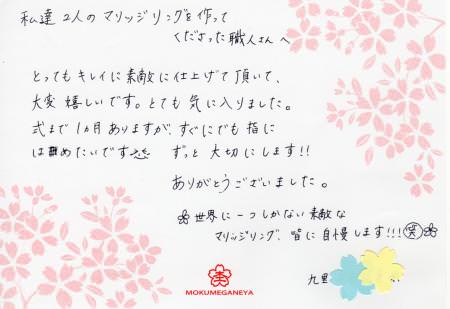 私達2人のマリッジリングを作って
くださった職人さんへ
とってもキレイに素敵に仕上げて頂いて、
大変嬉しいです。とても気に入りました。
式まで1カ月ありますが、すぐにでも指に
はめたいです ずっと大切にします!!
ありがとうございました。
世界に一つしかない素敵な
マリッジリング、皆に自慢します!!!笑
九里
MOKUMEGANEYA